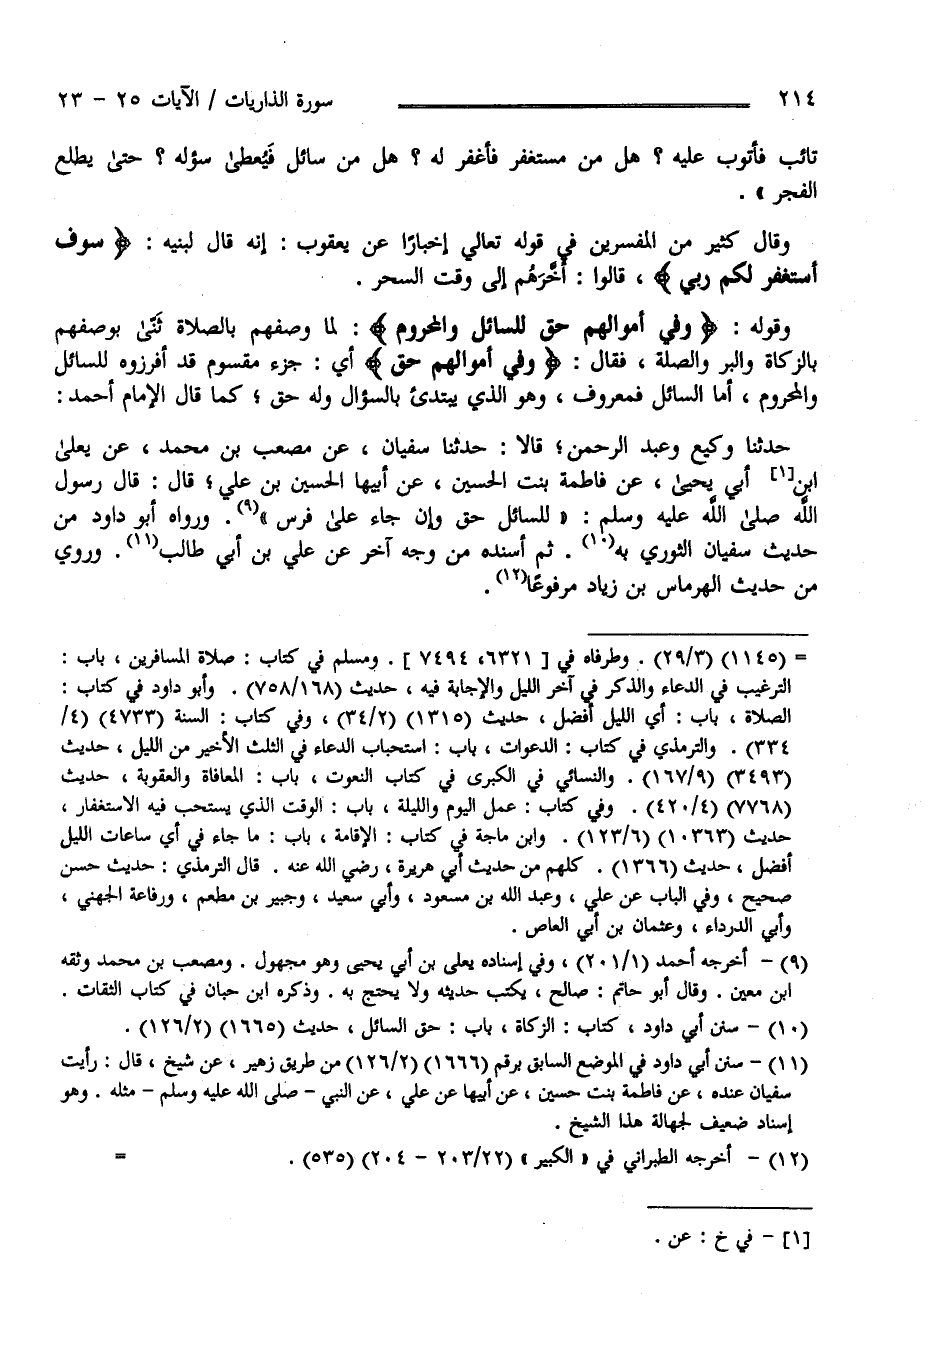 ٢١٤ سورة الذاريات / الآيات ٢٥ - ٢٣
تائب فأتوب عليه ؟ هل من مستغفر فأغفر له ؟ هل من سائل فَيُعطىٰ سؤله ؟ حتىٰ يطلع
الفجر » .
وقال كثير من المفسرين في قوله تعالي إخبارًا عن يعقوب : إنه قال لبنيه : ﴿ سوف
أستغفر لكم ربي ﴾ ، قالوا : أَخَّرَهُم إلى وقت السحر .
وقوله : ﴿ وفي أموالهم حق للسائل والمحروم ﴾ : لما وصفهم بالصلاة ثَنَّىٰ بوصفهم
بالزكاة والبر والصلة ، فقال : ﴿ وفي أموالهم حق ﴾ أي : جزء مقسوم قد أفرزوه للسائل
والمحروم ، أما السائل فمعروف ، وهو الذي يبتدئ بالسؤال وله حق ؛ كما قال الإمام أحمد :
حدثنا وكيع وعبد الرحمن؛ قالا : حدثنا سفيان ، عن مصعب بن محمد ، عن يعلىٰ
ابن[١] أبي يحيىٰ ، عن فاطمة بنت الحسين ، عن أبيها الحسين بن علي؛ قال : قال رسول
اللَّه صلىٰ اللَّه عليه وسلم : « للسائل حق وإن جاء علىٰ فرس »(٩). ورواه أبو داود من
حديث سفيان الثوري به(١٠) . ثم أسنده من وجه آخر عن علي بن أبي طالب(١١). وروي
من حديث الهرماس بن زياد مرفوعًا(١٢) .
= (١١٤٥) (٢٩/٣) . وطرفاه في [ ٦٣٢١، ٧٤٩٤ ] . ومسلم في كتاب : صلاة المسافرين ، باب :
الترغيب في الدعاء والذكر في آخر الليل والإجابة فيه ، حديث (٧٥٨/١٦٨) . وأبو داود في كتاب :
الصلاة ، باب : أي الليل أفضل ، حديث (١٣١٥) (٣٤/٢) ، وفي كتاب : السنة (٤٧٣٣) (٤/
٣٣٤) . والترمذي في كتاب : الدعوات ، باب : استحباب الدعاء في الثلث الأخير من الليل ، حديث
(٣٤٩٣) (١٦٧/٩) . والنسائي في الكبرى في كتاب النعوت ، باب : المعافاة والعقوبة ، حديث
(٧٧٦٨) (٤٢٠/٤) . وفي كتاب : عمل اليوم والليلة ، باب : الوقت الذي يستحب فيه الاستغفار ،
حديث (١٠٣٦٣) (١٢٣/٦) . وابن ماجة في كتاب : الإقامة ، باب : ما جاء في أي ساعات الليل
أفضل ، حديث (١٣٦٦) . كلهم من حديث أبي هريرة ، رضي الله عنه . قال الترمذي : حديث حسن
صحيح ، وفي الباب عن علي ، وعبد الله بن مسعود ، وأبي سعيد ، وجبير بن مطعم ، ورفاعة الجهني ،
وأبي الدرداء ، وعثمان بن أبي العاص .
(٩) - أخرجه أحمد (٢٠١/١) ، وفي إسناده يعلى بن أبي يحيى وهو مجهول . ومصعب بن محمد وثقه
ابن معين . وقال أبو حاتم : صالح ، يكتب حديثه ولا يحتج به . وذكره ابن حبان في كتاب الثقات .
(١٠) - سنن أبي داود ، كتاب : الزكاة ، باب : حق السائل ، حديث (١٦٦٥) (١٢٦/٢) .
(١١) - سنن أبي داود في الموضع السابق برقم (١٦٦٦) (١٢٦/٢) من طريق زهير ، عن شيخ ، قال : رأيت
سفيان عنده ، عن فاطمة بنت حسين ، عن أبيها عن علي ، عن النبي - صلى الله عليه وسلم - مثله . وهو
إسناد ضعيف لجهالة هذا الشيخ .
(١٢) - أخرجه الطبراني في « الكبير » (٢٠٣/٢٢ - ٢٠٤) (٥٣٥) . =
[١] - في خ : عن .